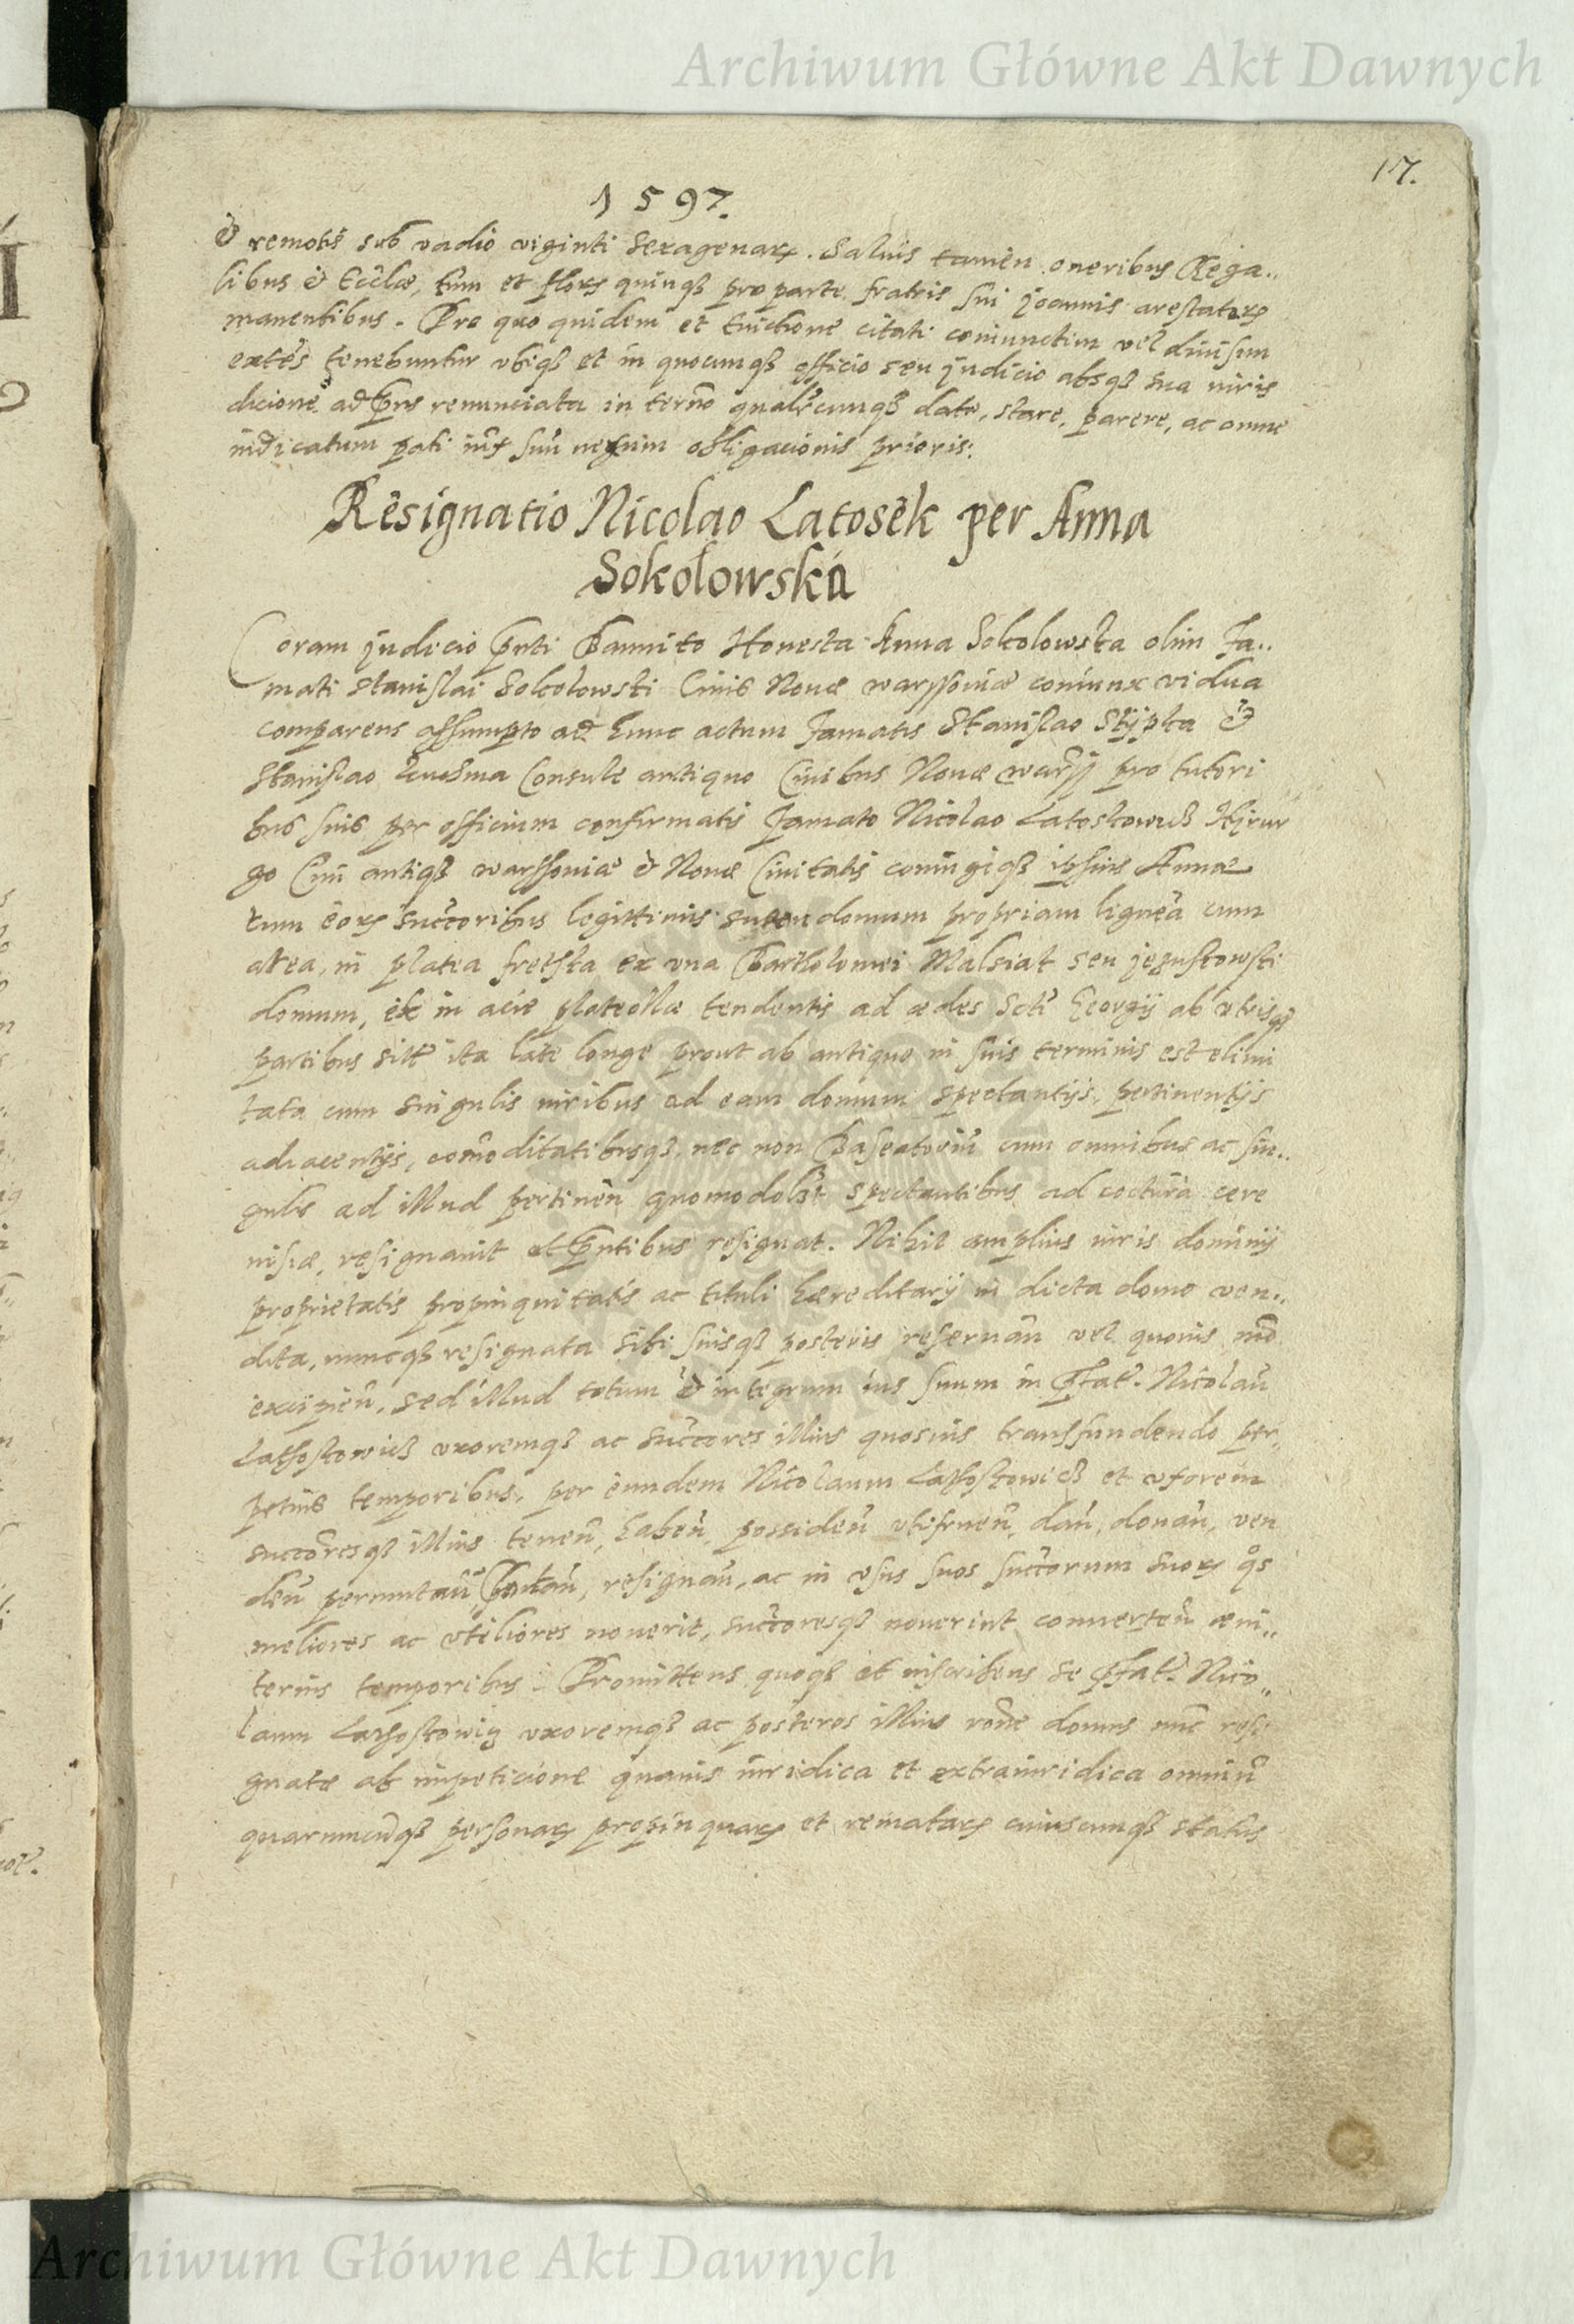 Archiwum Główne Akt Dawnych
17.
1597.
& remotis sub vadio viginti Sexagenarꝝ. Saluis tamen oneribus Rega..
libus & Eccłæ, tum et florꝝ quinqꝫ pro parte fratris sui joannis arestatorꝝ
manentibus. Pro quo quidem et euictione citati coniunctim vel diuisim
extēs tenebuntur vbiqꝫ et in quocunqꝫ officio seu judicio absqꝫ sua iuris
dicione ad pns renunciata in termō qualrcunqꝫ dato, stare, parere, ac omne
iudicatum pati sim nexum obligacionis prioris:
Resignatio Nicolao Latosek per Anna
Sokołowską
Coram judicio pnti Bannito Honesta Anna Sokolowska olim Fa..
mati Stanislai Sokolowski Ciuis Nouæ warssouiæ coniunx vidua
comparens assumpto ad hunc actum Famatis Stanislao Stypka &
Stanislao Consule antiquo Ciuibus Nouæ warss pro tutori
bus suis per officium confirmatis Famato Nicolao Latoskowicꝫ
go Ciui antiqꝫ warssouiæ & Nouæ Ciuitatis coniugiqꝫ ipsius Annæ
tum eorꝝ succoribus legittimis suam domum propriam ligneā cum
area, in platea fretska ex vna Bartholomei Malsiak seu jezuskowski
domum, ex in acie plateollæ tendentis ad ædes Scti Georgij ab vtrisqꝫ
partibus sitt ita late longe prout ab antiquo in suis terminis est elimi
tata cum singulis iuribus ad eam domum spectantijs, pertinentijs
adiacentijs, comoditatibusqꝫ, nec non Baseatoriū cum omnibus ac sin..
gulis ad illud pertinen quomodolibt spectantibus ad cocturā cere
uisiæ, resignauit et pntibus resignat. Nihil amplius iuris dominij
proprietatis propinquitatis ac tituli hæreditarij in dicta domo ven..
dita, nuncqꝫ resignata sibi suisqꝫ posteris reseruān vel quouis mō
excipien, sed illud totum & integrum ius suum in pfat. Nicolaū
Lathoskowicꝫ vxoremqꝫ ac succores illius quosuis transfundendo per,
petuis temporibus, per eundem Nicolaum Lathoskowicꝫ et vxorem
succoresqꝫ illius tenen, haben, possiden vtifruen, dan, donan, ven
den permutan, resignan, ac in vsus suos succorum suorꝝ qos
meliores ac vtiliores nouerit, succoresqꝫ nouerint conuerten æui..
ternis temporibus. Promittens quoqꝫ et inscribens se pfat. Nico,,
laum Lathoskowiꝫ vxoremqꝫ ac posteros illius rone domus nuc resi
gnatæ ab impeticione quauis iuridica et extraiuridica omniū
quarumcunqꝫ personarꝝ propinquarꝝ et remotarꝝ cuiuscunqꝫ status
Archiwum Główne Akt Dawnych